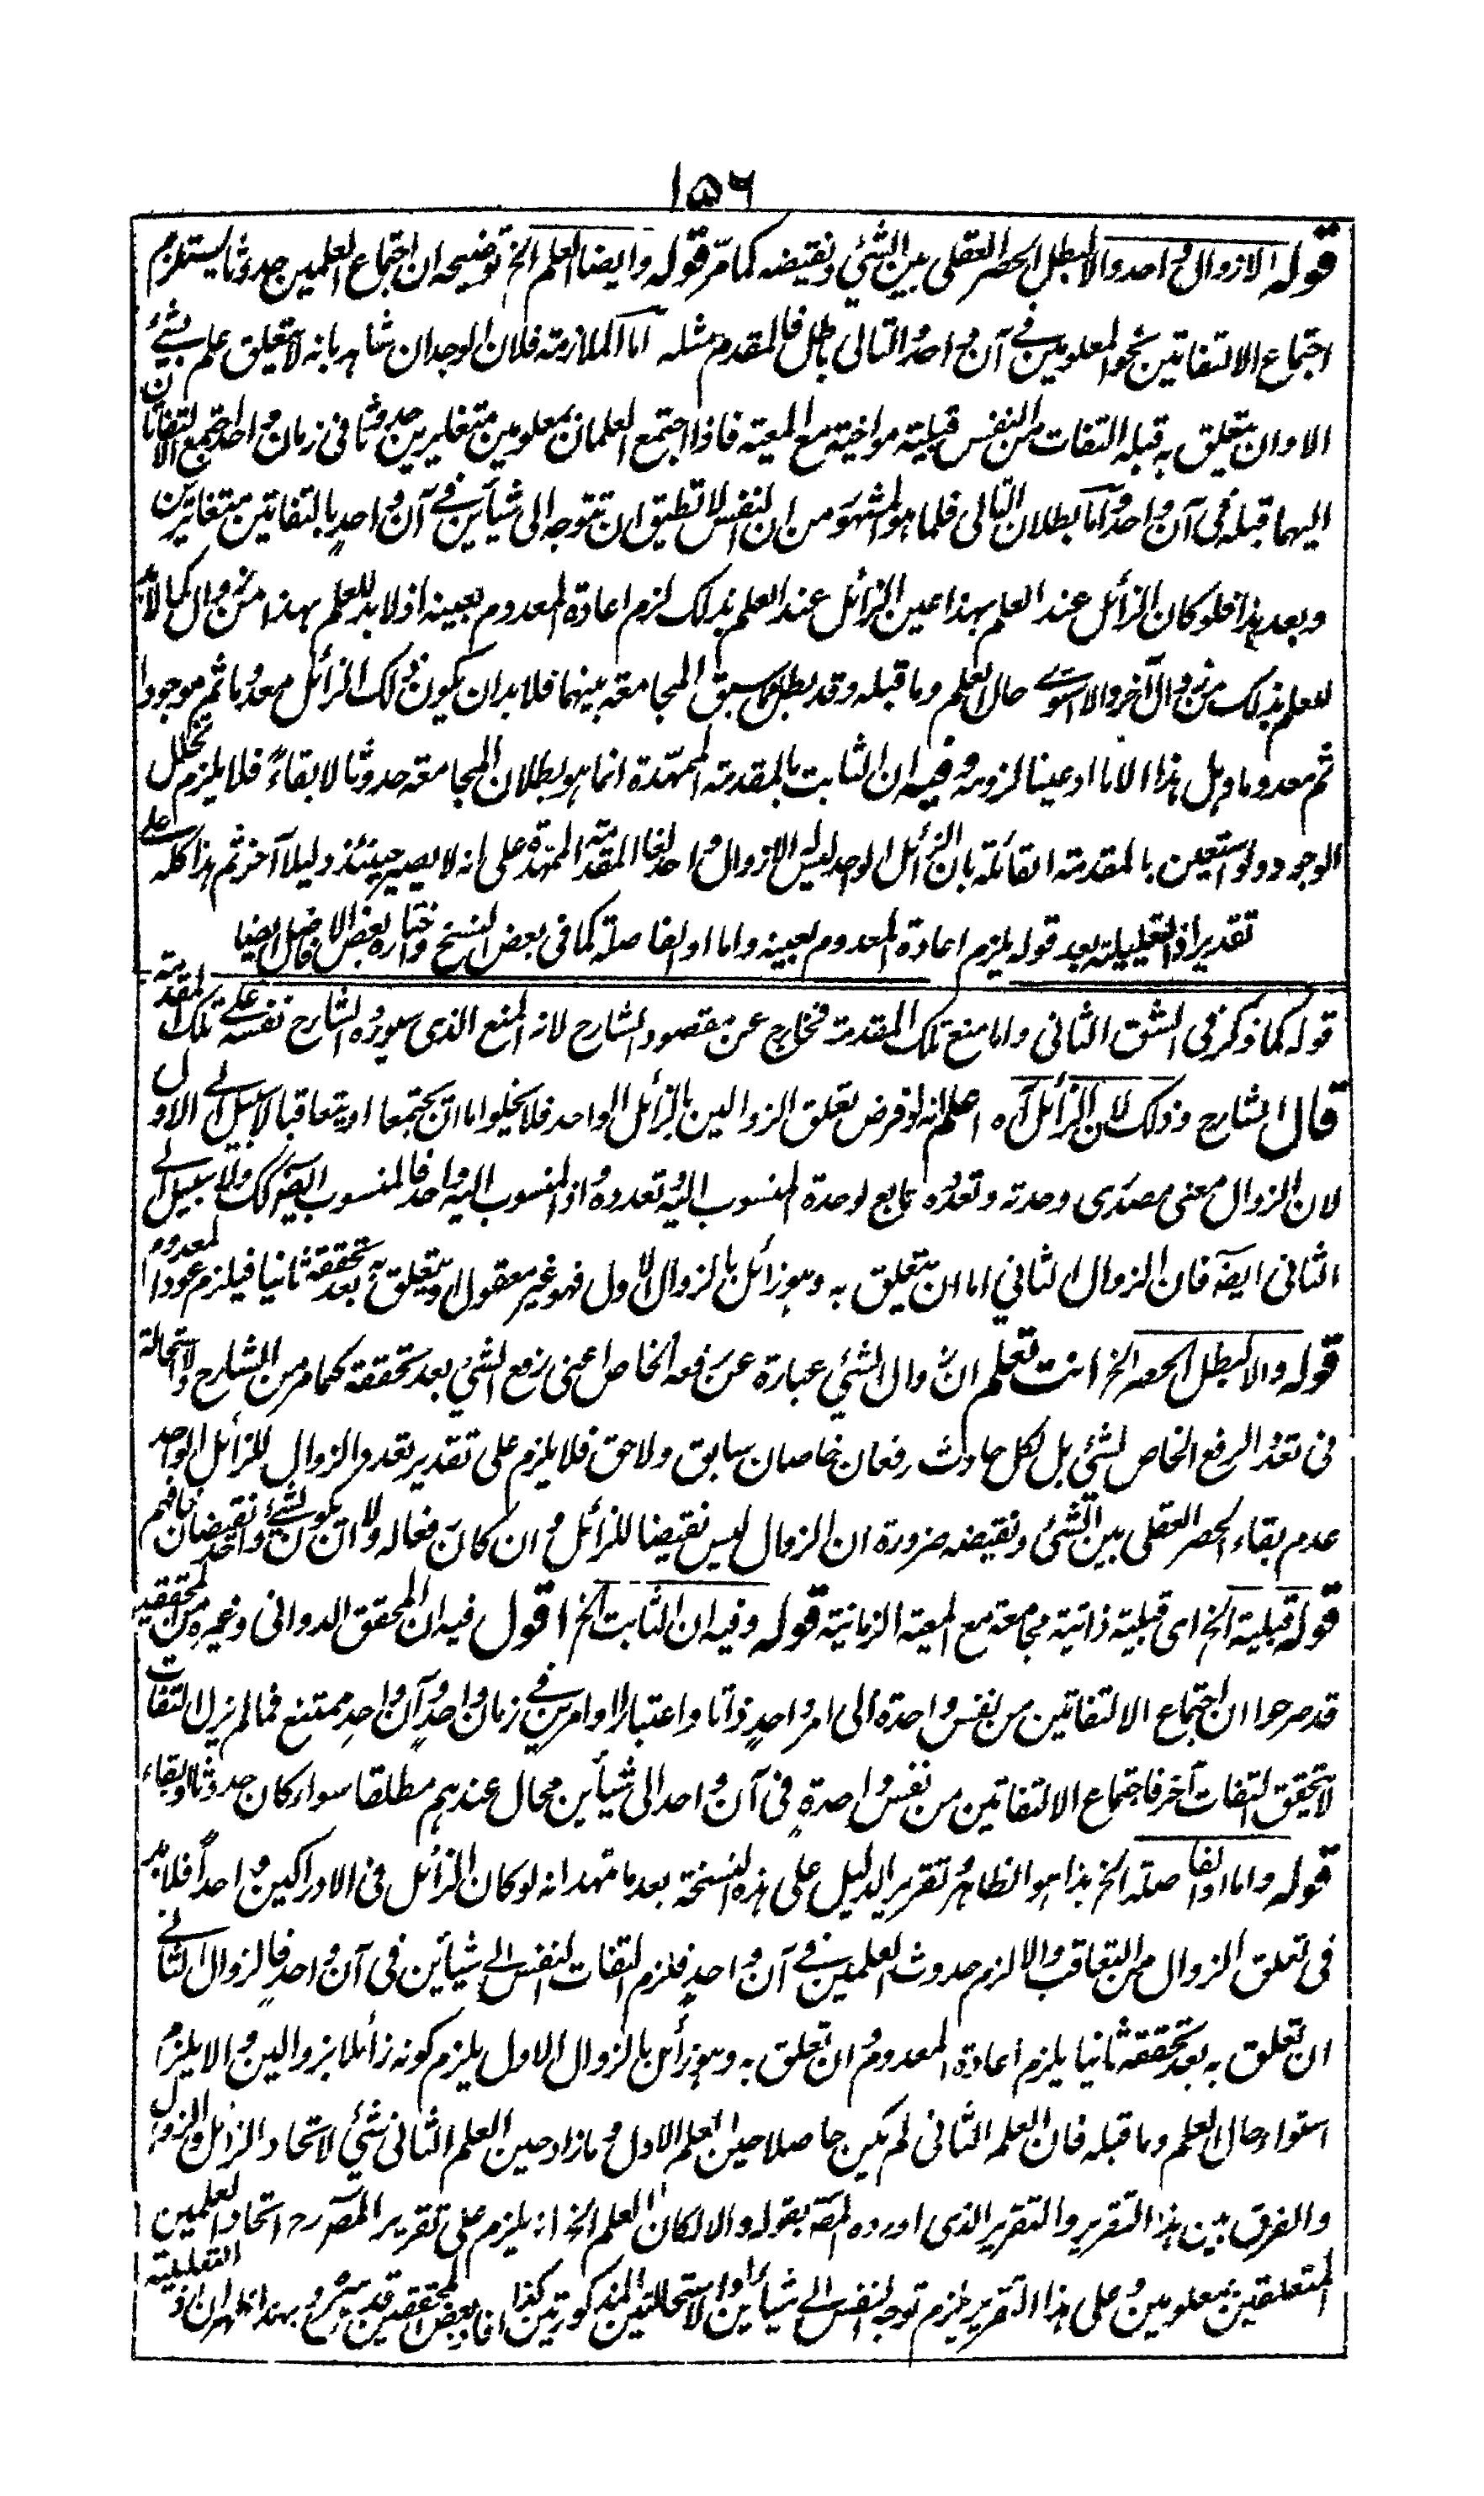 ١٥٦
قوله الا زوال واحد والا لبطل الحصر العقلي بين الشئ ونقيضه كما مر قوله وايضا العلم الخ توضيحه ان اجتماع العلمين حدوثا يستلزم
اجتماع الالتفاتين نحو المعلومين في آن واحد والتالى باطل فالمقدم مثله اما الملازمة فلان الوجدان شاهد بانه لا يتعلق علم بشئ
الا وان يتعلق به قبله التفات من النفس قبلية مواخية مع المعية فاذا اجتمع العلمان بمعلومين متغايرين حدوثا فى زمان واحد اجتمع الالتفاتان
اليهما قبله فى آن واحد واما بطلان التالى فلما هو المشهور من ان النفس لا تطيق ان تتوجه الى شيأين في آن واحد بالتفاتين متغايرين
وبعد هذا فلو كان الزائل عند العلم بهذا عين الزائل عند العلم بذلك لزم اعادة المعدوم بعينه اذ لا بد للعلم بهذا من زوال كما لا بد
للعلم بذلك من زوال آخر والا استوى حال العلم وما قبله وقد بطل كما سبق المجامعة بينهما فلا بد ان يكون ذلك الزائل معدوما ثم موجودا
ثم معدوما وهل هذا الا ما ادعينا لزومه وفيه ان الثابت بالمقدمة الممهدة انما هو بطلان المجامعة حدوثا لا بقاءً فلا يلزم تخلل
الوجود ولو استعين بالمقدمة القائلة بان الزائل الواحد ليس له الا زوال واحد لغا المقدمة الممهدة على انه لا يصير حينئذ دليلا آخر ثم هذا كله على
تقدير اذ التعليلية بعد قوله يلزم اعادة المعدوم بعينه واما او الفاصلة كما فى بعض النسخ واختاره بعض الافاضل ايضا
قوله كما ذكر فى الشق الثانى واما منع تلك المقدمة فخارج عن مقصود الشارح لانه المنع الذى سيورده الشارح نفسه على تلك المقدمة
قال الشارح وذلك لان الزائل آه اعلم انه لو فرض تعلق الزوالين بالزائل الواحد فلا يخلو اما ان يجتمعا او يتعاقبا لا سبيل الى الاول
لان الزوال معنى مصدرى وحدته وتعدده تابع لوحدة المنسوب اليه وتعدده واذ المنسوب اليه واحد فالمنسوب ايضا كذلك ولا سبيل الى
الثانى ايضا فان الزوال الثاني اما ان يتعلق به وهو زائل بالزوال الاول فهو غير معقول او يتعلق به بعد تحققه ثانيا فيلزم عود المعدوم
قوله والا لبطل الحصر الخ انت تعلم ان زوال الشئ عبارة عن رفعه الخاص اعنى رفع الشئ بعد تحققه كما مر من الشارح ولا استحالة
فى تعدد الرفع الخاص لشئ بل لكل حادث رفعان خاصان سابق ولاحق فلا يلزم على تقدير تعدد الزوال للزائل الواحد
عدم بقاء الحصر العقلى بين الشئ ونقيضه ضرورة ان الزوال ليس نقيضا للزائل وان كان رفعا له ولا ان يكون لشئ واحد نقيضان فافهم
قوله قبلية الخ اى قبلية ذاتية مجامعة مع المعية الزمانية قوله وفيه ان الثابت الخ اقول فيه ان المحقق الدوانى وغيره من المحققين
قد صرحوا ان اجتماع الالتفاتين من نفس واحدة الى امر واحد ذاتا واعتبارا او امرين في زمان واحد وآن واحد ممتنع فما لم يزل التفات
لا يتحقق التفات آخر فاجتماع الالتفاتين من نفس واحدة فى آن واحد الى شيأين محال عندهم مطلقا سواء كان حدوثا او بقاء
قوله واما او الفاصلة الخ هذا هو الظاهر تقرير الدليل على هذه النسخة بعد ما تمهد انه لو كان الزائل فى الادراكين واحدا فلا بد
فى تعلق الزوال من التعاقب والا لزم حدوث العلمين في آن واحد فلزم التفات النفس الى شيأين فى آن واحد فالزوال الثاني
ان تعلق به بعد تحققه ثانيا يلزم اعادة المعدوم وان تعلق به وهو زائل بالزوال الاول يلزم كونه زائلا بزوالين والا يلزم
استواء حال العلم وما قبله فان العلم الثانى لم يكن حاصلا حين العلم الاول وما زاد حين العلم الثانى شئ لاتحاد الزائل والزوال
والفرق بين هذا التقرير والتقرير الذى اورده المصنف بقوله والا لكان العلم الخ انه يلزم على تقرير المصنف رح اتحاد العلمين
المتعلقين بمعلومين وعلى هذا التقرير يلزم توجه النفس الى شيأين او الاستحالتين المذكورتين كذا افاد بعض المحققين قدس سره وبهذا ظهر ان اذ التعليلية